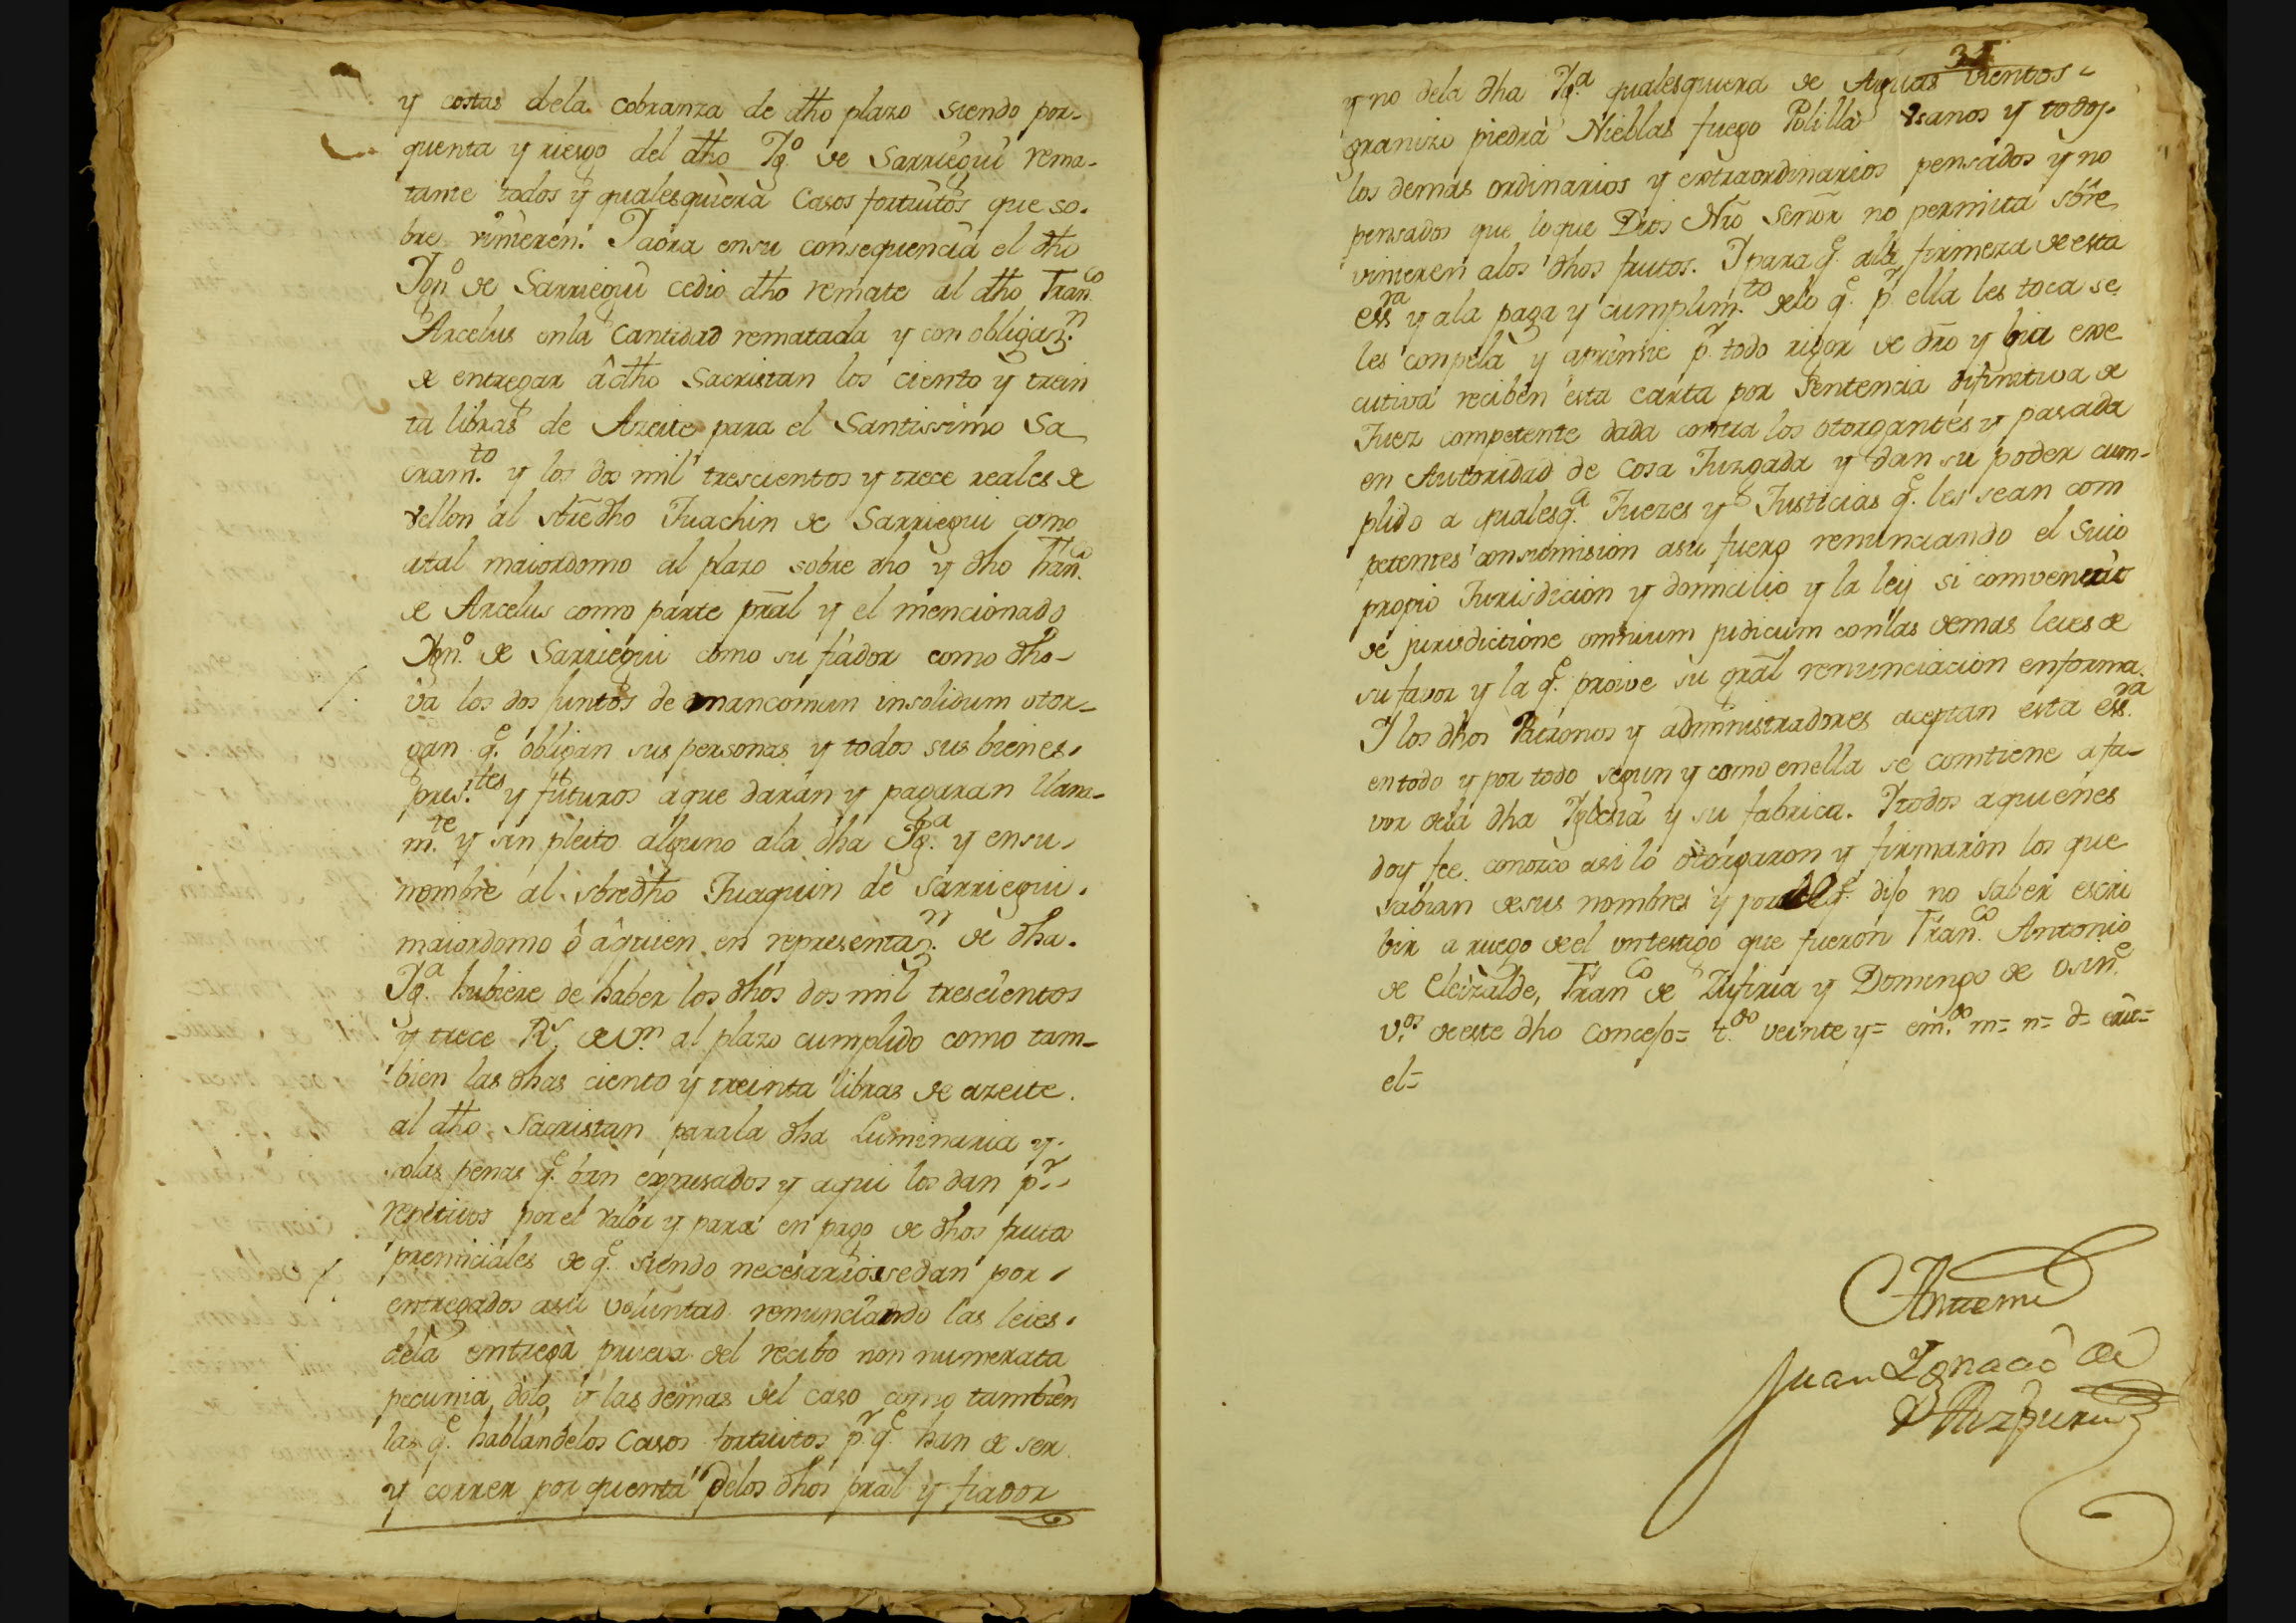 y costas dela cobranza de dho plazo siendo por-
quenta y riesgo del dho Ygº de Sarriegui rema-
tante todos y qualesquiera Casos fortuitos que so-
bre vinieren. Yaora ensu consequencia el dho
Ygnº de Sarriegui cedio dho remate al dho Franco
Arcelus enla Cantidad rematada y con obligazn
de entregar â dho Sacristan los ciento y trein
ta libras de Azeite para el Santissimo Sa
cramto y los dos mil trescientos y trece reales de
vellon al sbredho Juachin de Sarriegui como
atal maiordomo al plazo sobre dho y dho Franco
de Arcelus como parte pral y el mencionado
Ygnº de Sarriegui como su fiador como dho-
va los dos juntos de mancomun insolidum otor-
gan qe obligan sus personas y todos sus bienes
prestes y futuros aque daran y pagaran llana-
mte y sin pleito alguno ala dha Yga y ensu
nombre al sbredho Juaquin de Sarriegui
maiordomo ô âquien en representazn de dha
Yga hubiere de haber los dhos dos mil trescientos
y trece Rs de vn al plazo cumplido como tam-
bien las dhas ciento y treinta libras de azeite
al dho Sacristan parala dha Luminaria y
solas penas qe ban expresados y aqui los dan pr
repetidos por el valor y para en pago de dhos frutos
premiciales de qe siendo necesario sedan por
entregados asu voluntad renunciando las leies
dela entrega prueva del recibo non numerata
pecunia dolo y las demas del caso como tambien
las qe hablandelos Casos fortuitos pr qe han de ser
y correr por quenta delos dhos pral y fiador
y no dela dha Yga qualesquiera de Aguas vientos
granizo piedra Nieblas fuego Polilla Usanos y todos
los demas ordinarios y extraordinarios pensados y no
pensados que loque Dios Nro Señor no permita sbre
vinieren alos dhos frutos. Ypara qe ala firmeza de esta
essra y ala paga y cumplimto delo qe pr ella les toca se
les conpela y apremie pr todo rigor de dro y bia exe
cutiva reciben esta carta por Sentencia difinitiva de
Juez competente dada contra los otorgantes y pasada
en Autoridad de Cosa Juzgada y dan su poder cum-
plido a qualesqa Juezes y Justicias qe les sean com
petentes consumision asu fuero renunciando el Suio
propio Jurisdicion y domicilio y la ley si convenerit
de jurisdictione omnium judicum conlas demas leies de
su favor y la qe proive su gral renunciacion enforma
Y los dhos Patronos y administradores aceptan esta essra
entodo y por todo segun y como enella se contiene a fa-
vor dela dha Yglesia y su fabrica. Ytodos aquienes
doy fee conozco asi lo otorgaron y firmaron los que
sabian desus nombres y por el qe dijo no saber escri
bir a ruego de el untestigo que fueron Franco Antonio
de Eleizalde, Franco de Zufiria y Domingo de
vos deeste dho Concejo= tdo veinte y= emdo m= n= d= erit=
el=
Antemi
Juan Ignacio de
Aizpuru